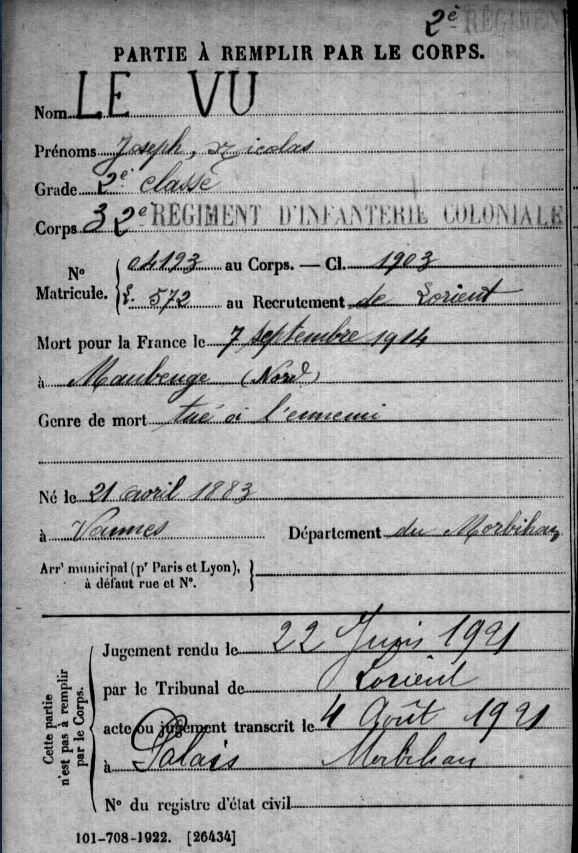 2è RÉGIMENT
PARTIE À REMPLIR PAR LE CORPS.
Nom LE VU
Prénoms Joseph, Nicolas
Grade 2e classe
Corps 32e RÉGIMENT D'INFANTERIE COLONIALE
N° Matricule. 04193 au Corps. — Cl. 1903
L. 572 au Recrutement de Lorient
Mort pour la France le 7 septembre 1914
à Maubeuge (Nord)
Genre de mort tué à l'ennemi
Né le 21 avril 1883
à Vannes Département du Morbihan
Arrt municipal (pr Paris et Lyon),
à défaut rue et N°.
Cette partie n'est pas à remplir par le Corps.
Jugement rendu le 22 Juin 1921
par le Tribunal de Lorient
acte ou jugement transcrit le 4 Août 1921
à Palais Morbihan
N° du registre d'état civil
101-708-1922. [26434]